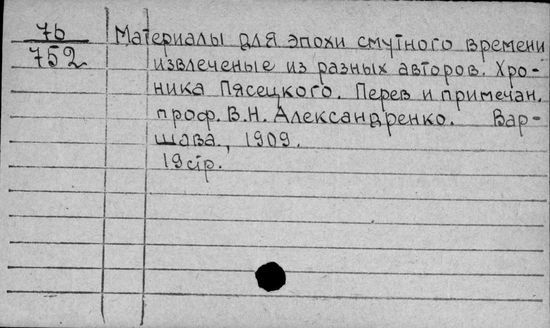 7b Материалы для эпохи смутного времени
752 извлеченые из разных авторов. Хро-
ника Пясецкого. Перев и примечан.
проф. В.Н. Александренко. Вар-
шава., 1909.
19 стр.